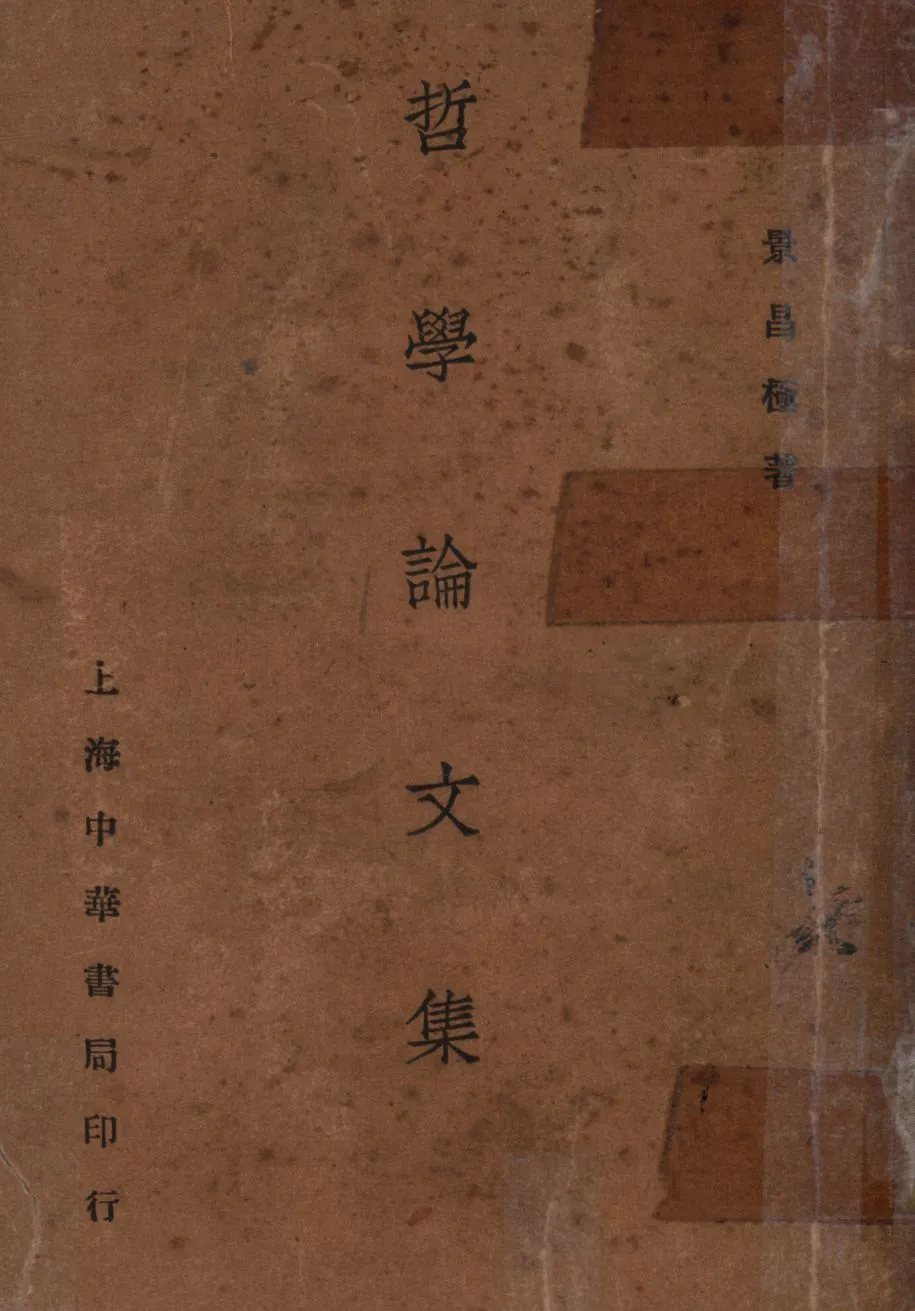 景昌極著
哲學論文集
上海中華書局印行